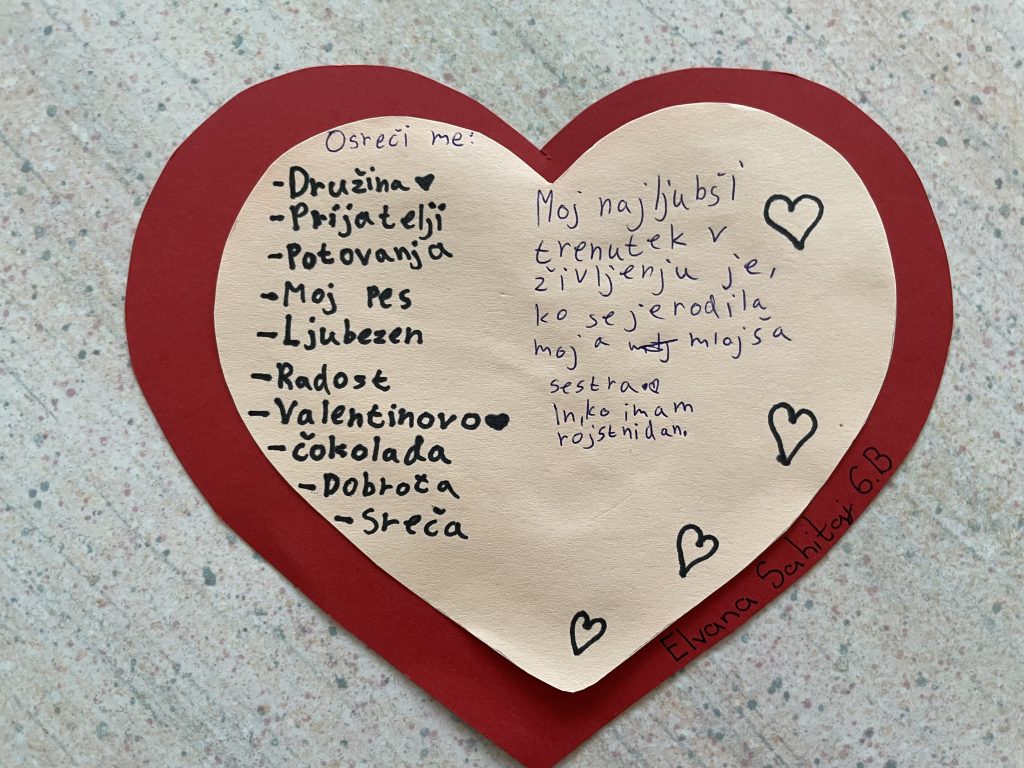 Osreči me:
-Družina
-Prijatelji
-Potovanja
-Moj pes
-Ljubezen
-Radost
-Valentinovo
-čokolada
-Dobrota
-Sreča
Moj najljubši
trenutek v
življenju je,
ko se je rodila
moja mlajša
sestra
In, ko imam
rojstni dan.
Elvana Sahitaj 6.B